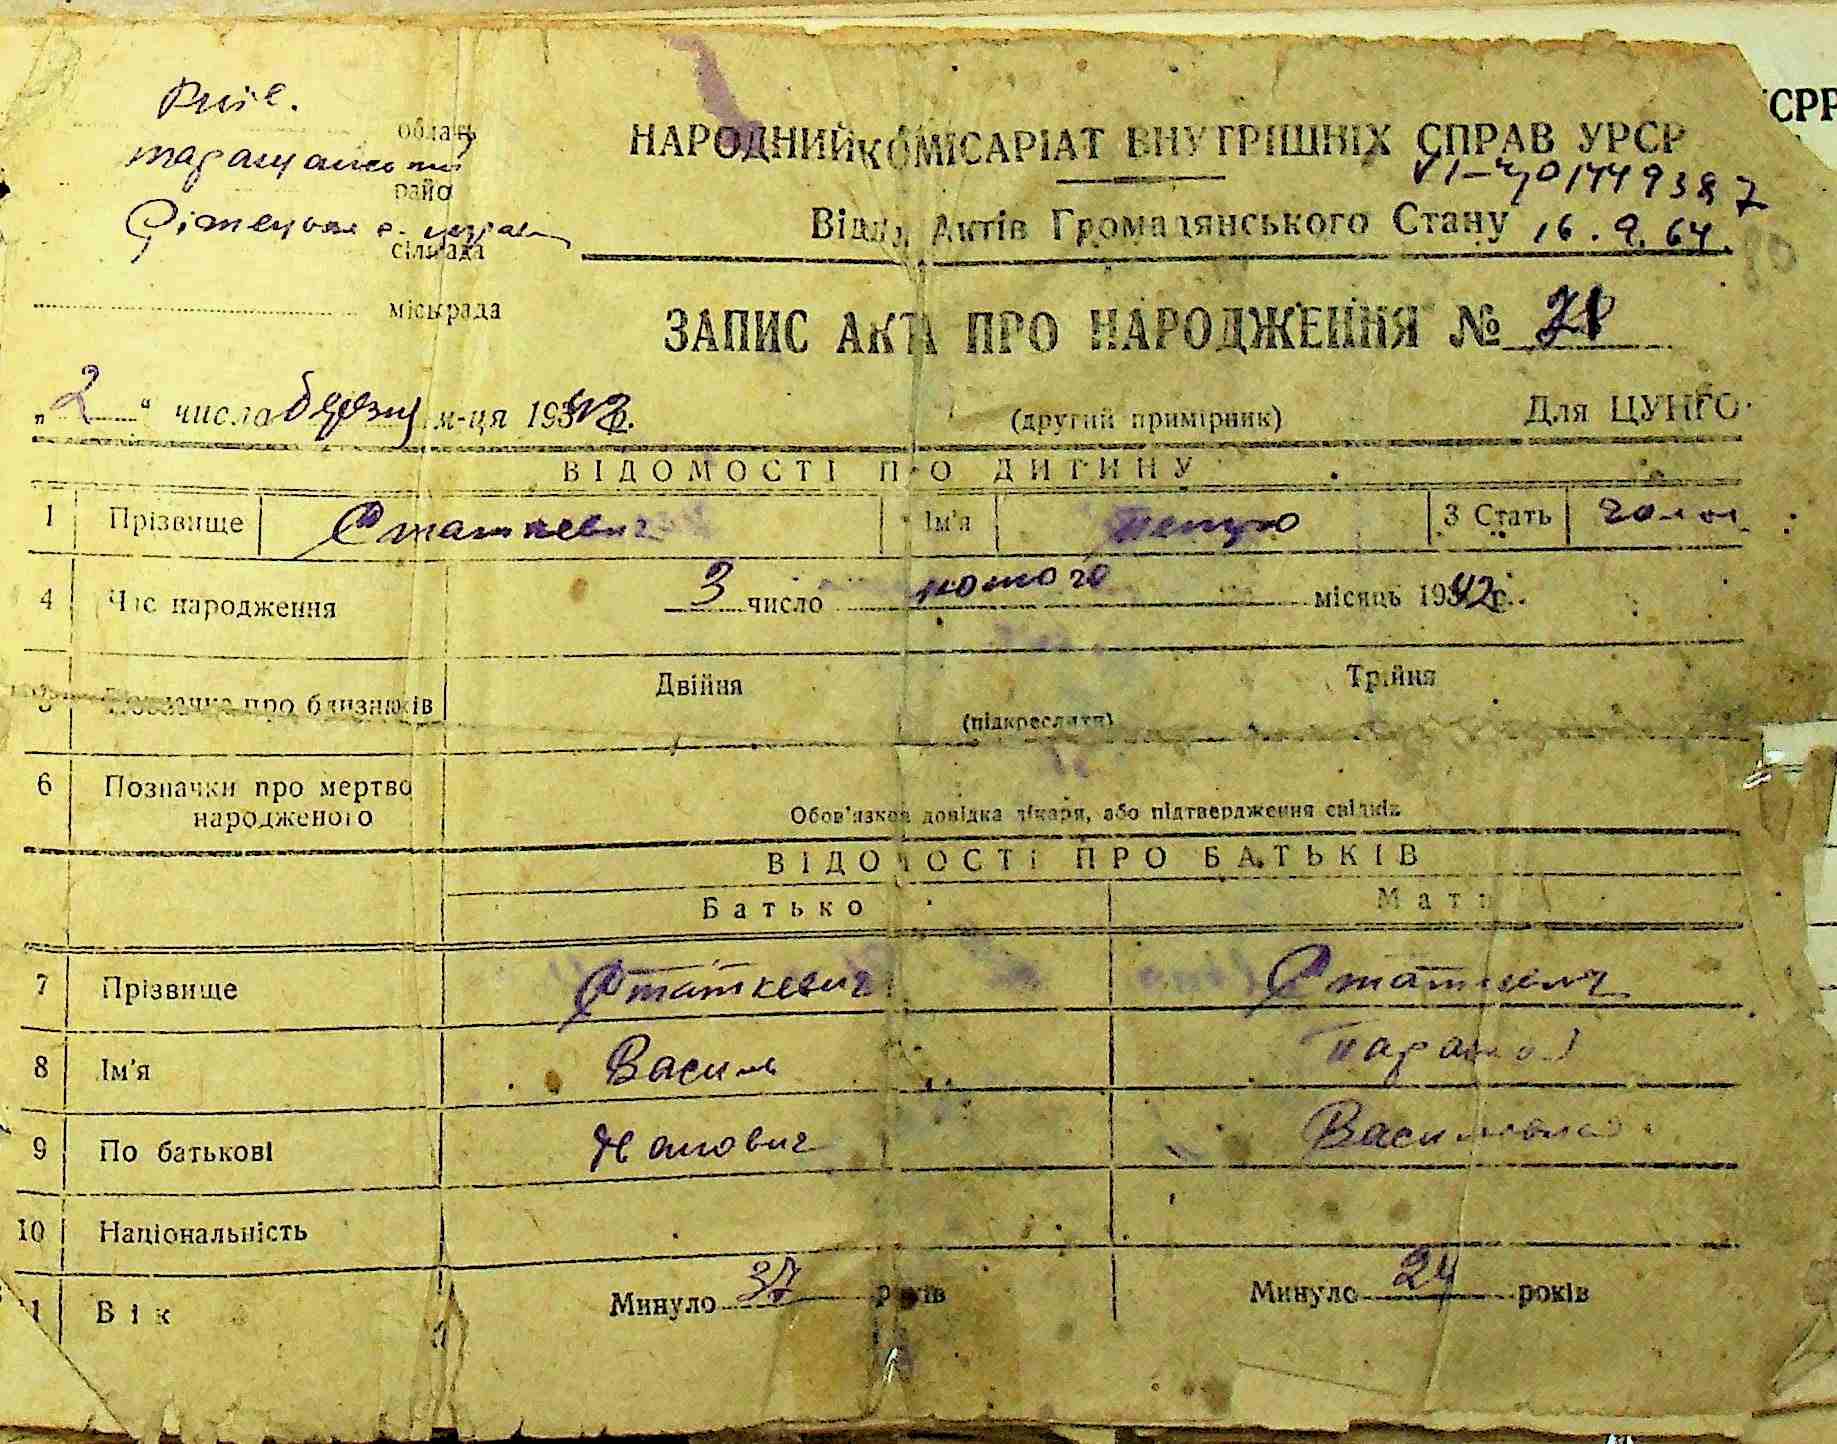 Київ.
область
Таращанський
райо
сільрада
міськрада
НАРОДНИЙ КОМІСАРІАТ ВНУТРІШНІХ СПРАВ УРСР
16.9.64.
Відділ Актів Громадянського Стану
ЗАПИС АКТА ПРО НАРОДЖЕННЯ №
„2“ числа березня м-ця 1942р.
(другий примірник)
Для ЦУНГО
ВІДОМОСТІ ПРО ДИТИНУ
1 Прізвище Статкевич Ім'я 3 Стать чолов
4 Час народження 3 число лютого місяць 1942р.
5 Позначка про близнюків Двійня Трійня
(підкреслити)
6 Позначки про мертво
народженого
Обов'язкова довідка лікаря, або підтвердження свідків
ВІДОМОСТІ ПРО БАТЬКІВ
Батько Мати
7 Прізвище Статкевич Статкевич
8 Ім'я Василь
9 По батькові Василівна
10 Національність
11 Вік Минуло 37 років Минуло 24 років
СРР